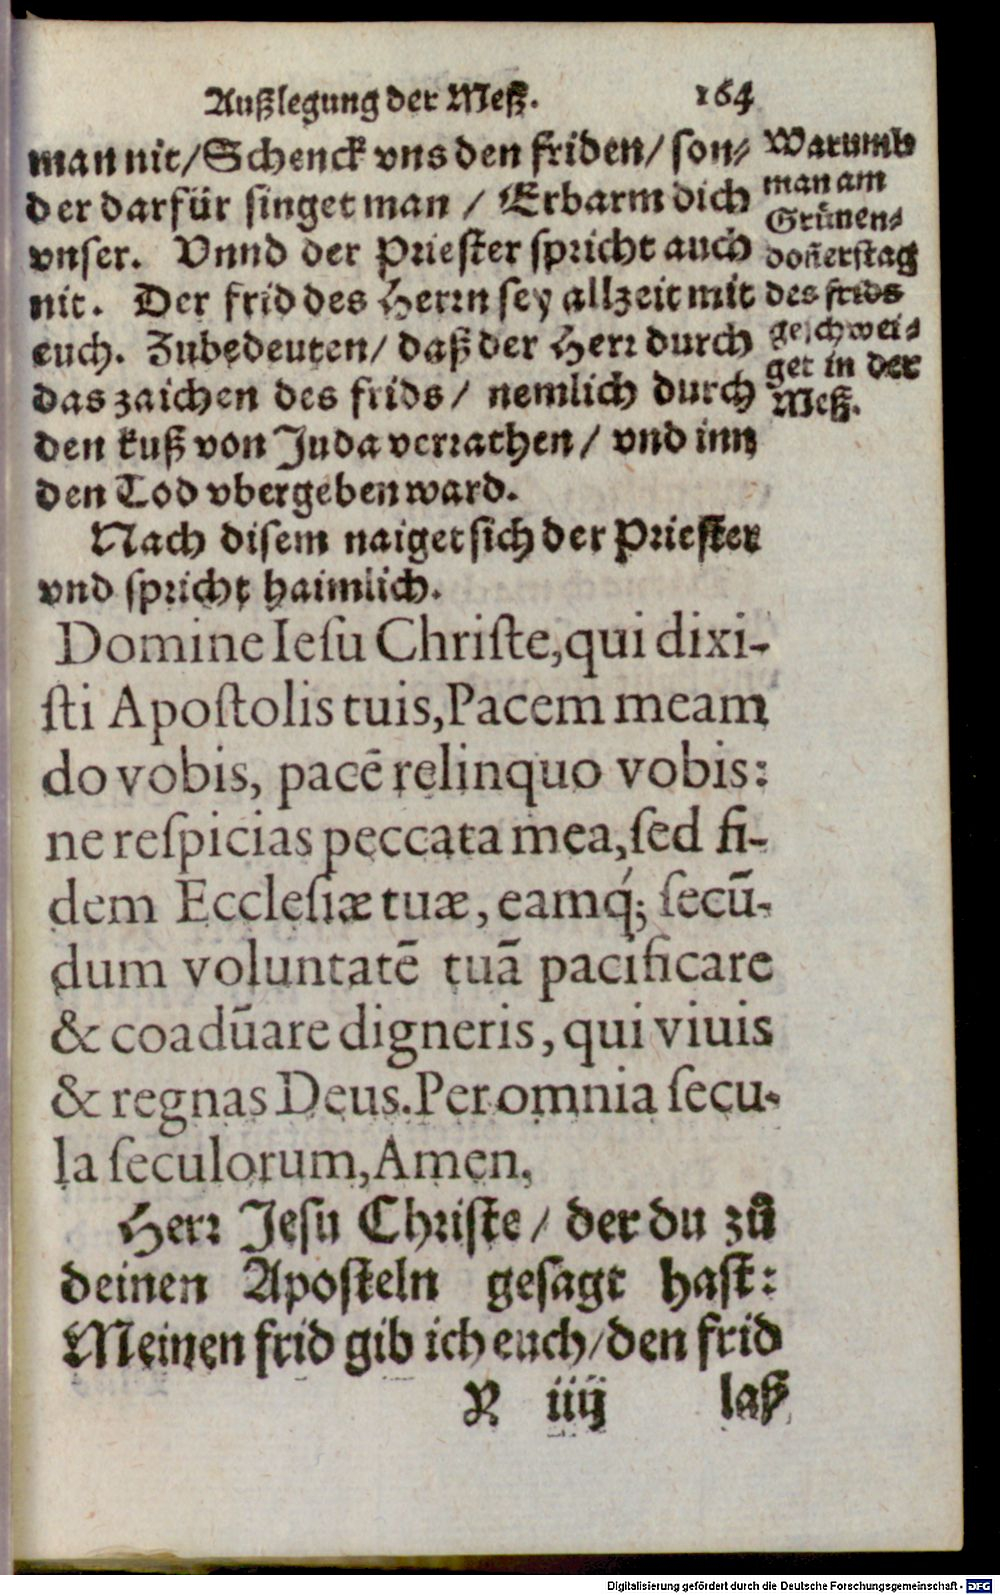 Außlegung der Meß. 164
man nit/Schenck vns den friden/ son⸗
der darfür singet man / Erbarm dich
vnser. Vnnd der Priester spricht auch
nit. Der frid des Herrn sey allzeit mit
euch. Zubedeuten/ daß der Herr durch
das zaichen des frids/ nemlich durch
den kuß von Juda verrathen/ vnd inn
den Tod vbergeben ward.
Warumb
man am
Grünen⸗
doñerstag
des frids
geschwei⸗
get in der
Meß.
Nach disem naiget sich der Priester
vnd spricht haimlich.
Domine Iesu Christe, qui dixi-
sti Apostolis tuis, Pacem meam
do vobis, pacē relinquo vobis:
ne respicias peccata mea, sed fi-
dem Ecclesiæ tuæ, eamq́; secū-
dum voluntatē tuā pacificare
& coadūare digneris, qui viuis
& regnas Deus. Per omnia secu-
la seculorum, Amen,
Herr Jesu Christe / der du zů
deinen Aposteln gesagt hast:
Meinen frid gib ich euch/den frid
R iiij laß
Digitalisierung gefördert durch die Deutsche Forschungsgemeinschaft - DFG